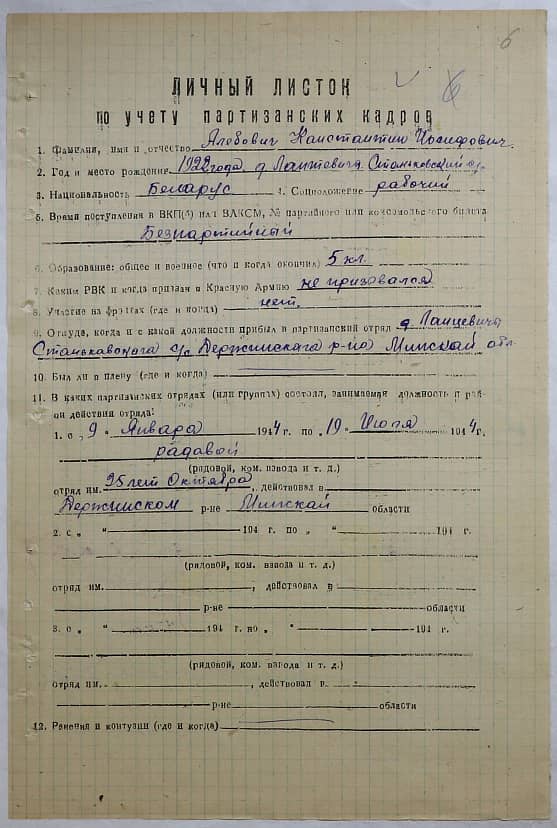 6
ЛИЧНЫЙ ЛИСТОК
по учету партизанских кадров
1. Фамилия, имя и отчество Алебович Канстантин Иосифович.
2. Год и место рождения 1922 года д. Ланцевичи Станьковский с/с.
3. Национальность Беларус 4. Соцположение рабочий
5. Время поступления в ВКП(б) или ВЛКСМ, № партийного или комсомольского билета
Безпартийный
6. Образование: общее и военное (что и когда окончил) 5 кл.
7. Каким РВК и когда призван в Красную Армию не призовался
8. Участие на фронтах (где и когда) нет.
9. Откуда, когда и с какой должности прибыл в партизанский отряд д. Ланцевичи
Станьковского с/с Держинскаго р-на Минской обл.
10. Был ли в плену (где и когда)
11. В каких партизанских отрядах (или группах) состоял, занимаемая должность и рай-
он действий отряда:
1. с „ 9 " Января 1944 г. по „ 19 " Июля 1944 г.
радавой
(рядовой, ком. взвода и т. д.)
отряд им. 25 лет Октября, действовал в
Держинском р-не Минской области
2. с „ " 194 г. по „ " 194 г.
(рядовой, ком. взвода и т. д.)
отряд им. , действовал в
р-не области
3. с „ " 194 г. по „ " 194 г.
(рядовой, ком. взвода и т. д.)
отряд им. , действовал в
р-не области
12. Ранения и контузии (где и когда)